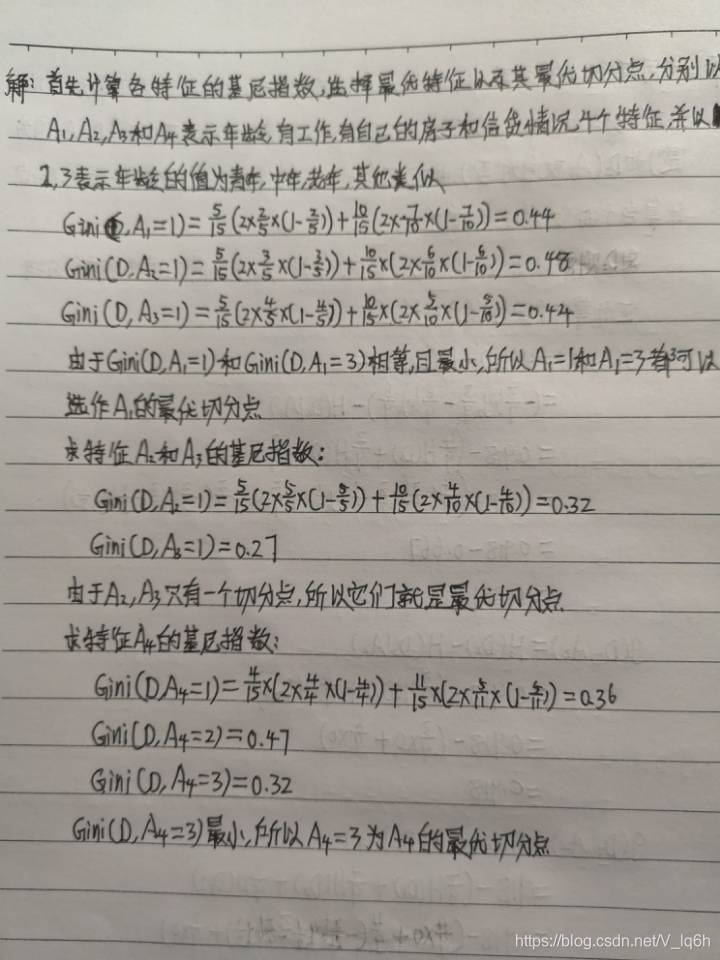 解:首先计算各特征的基尼指数,选择最优特征以及其最优切分点,分别以
A₁,A₂,A₃和A₄表示年龄,有工作,有自己的房子和信贷情况4个特征,并以
2,3表示年龄的值为青年,中年,老年,其他类似
Gini(D,A₁=1)=5/15(2×2/5×(1-2/5))+10/15(2×7/10×(1-7/10))=0.44
Gini(D,A₂=1)=5/15(2×3/5×(1-3/5))+10/15×(2×6/10×(1-6/10))=0.48
Gini(D,A₃=1)=5/15(2×4/5×(1-4/5))+10/15×(2×5/10×(1-5/10))=0.44
由于Gini(D,A₁=1)和Gini(D,A₁=3)相等,且最小,所以A₁=1和A₁=3都可以
选作A₁的最优切分点
求特征A₂和A₃的基尼指数:
Gini(D,A₂=1)=5/15(2×5/5×(1-5/5))+10/15(2×4/10×(1-4/10))=0.32
Gini(D,A₃=1)=0.27
由于A₂,A₃只有一个切分点,所以它们就是最优切分点
求特征A₄的基尼指数:
Gini(D,A₄=1)=4/15×(2×4/4×(1-4/4))+11/15×(2×5/11×(1-5/11))=0.36
Gini(D,A₄=2)=0.47
Gini(D,A₄=3)=0.32
Gini(D,A₄=3)最小,所以A₄=3为A₄的最优切分点
https://blog.csdn.net/V_lq6h